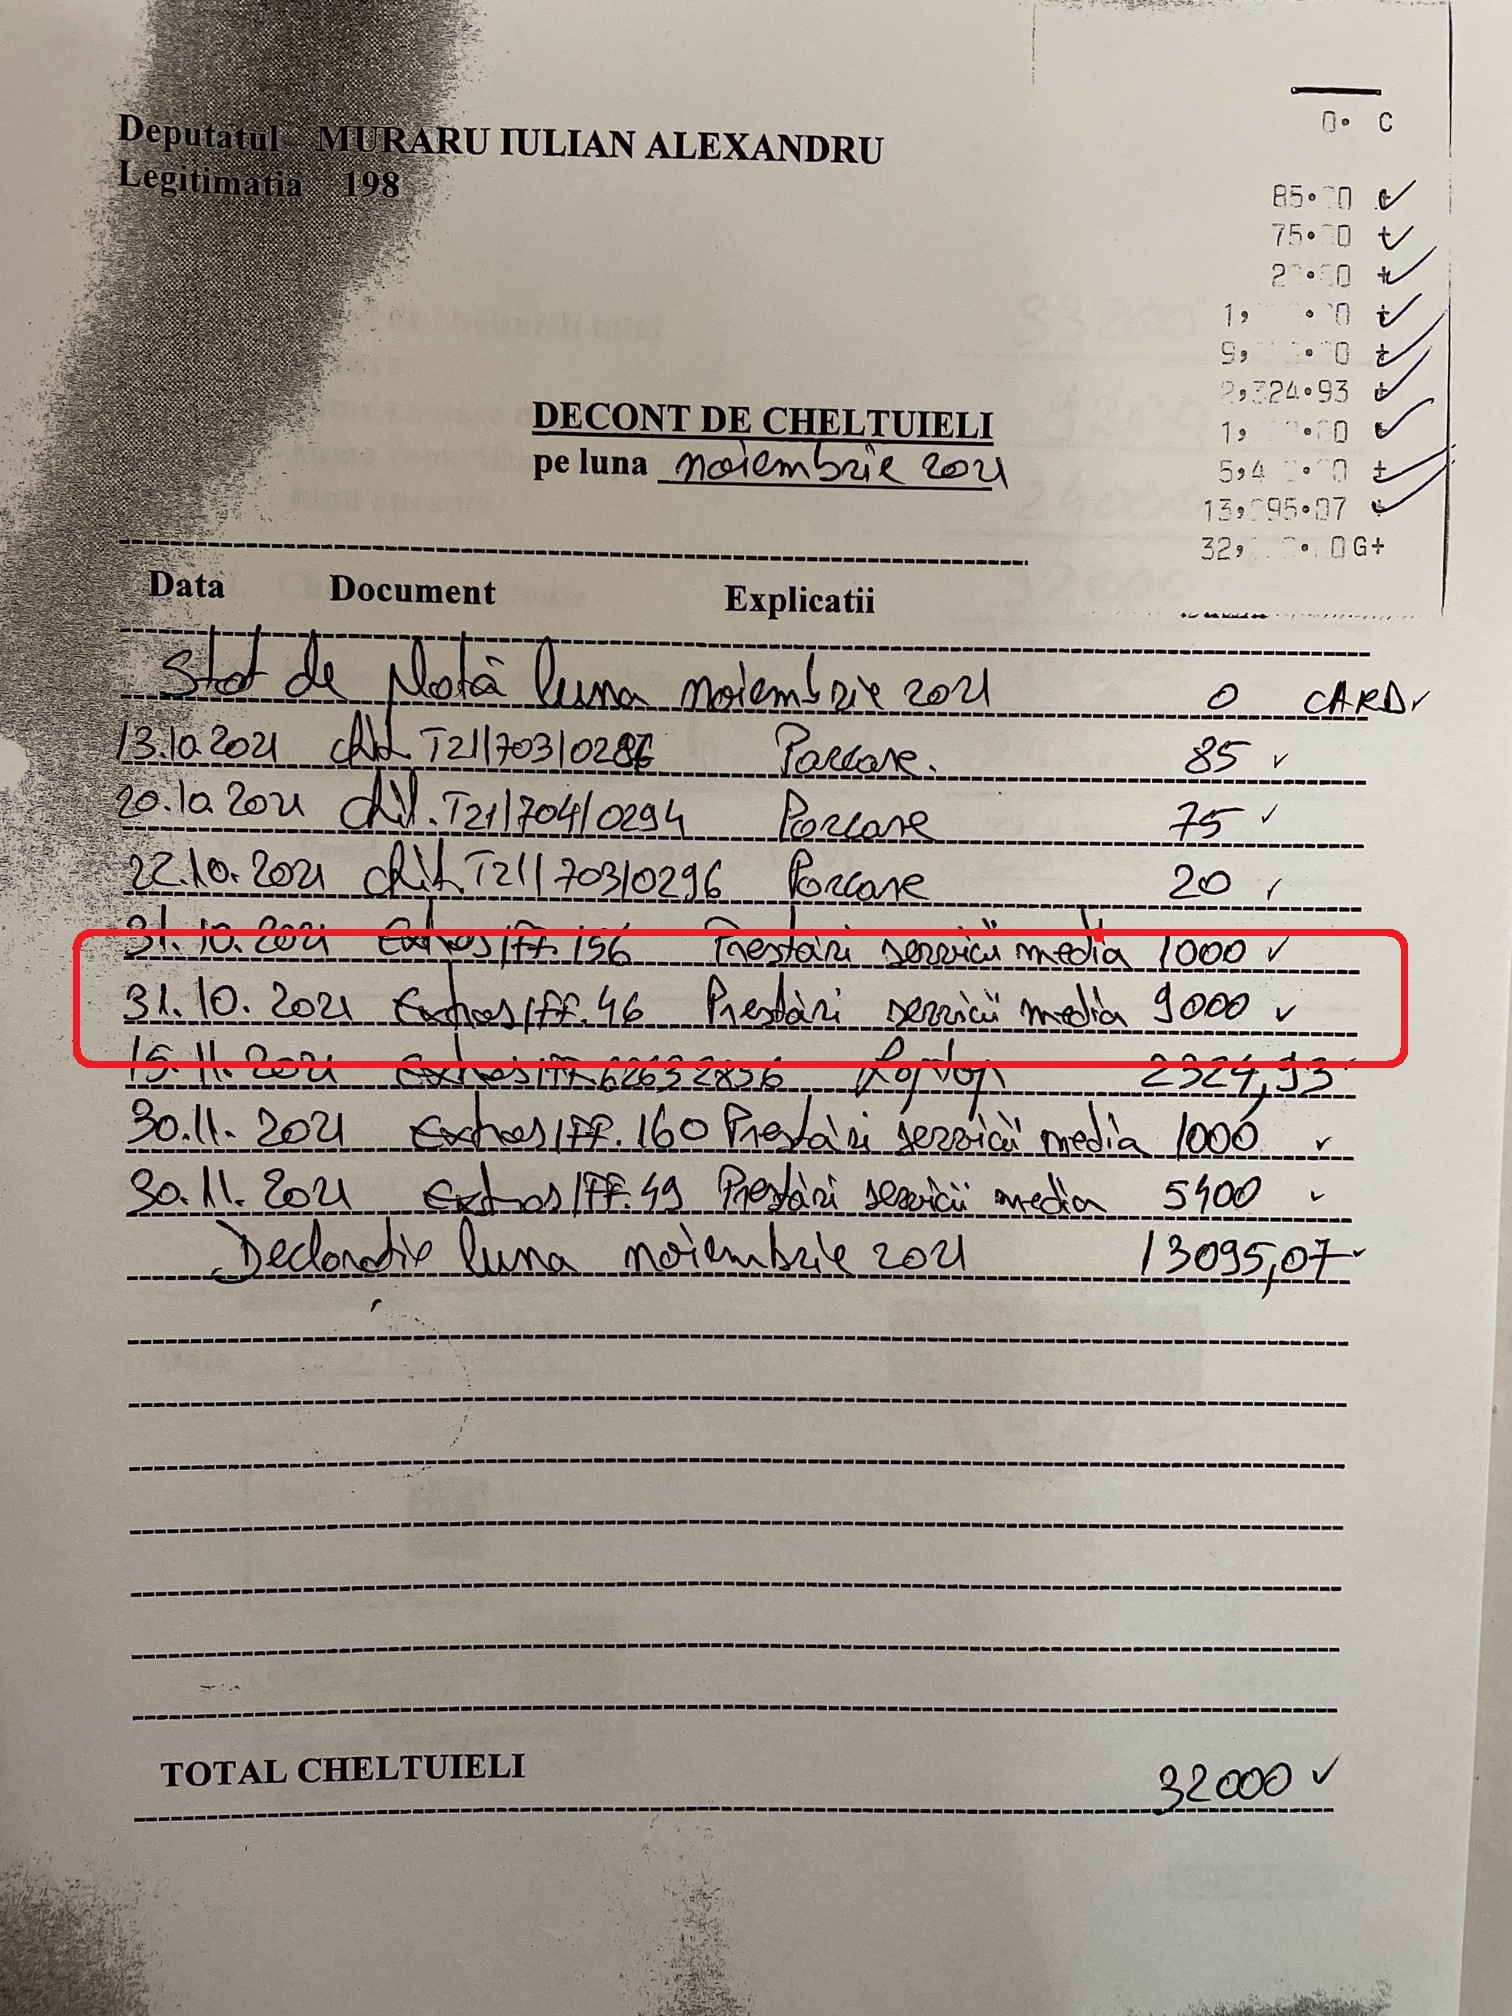 Deputatul MURARU IULIAN ALEXANDRU
Legitimatia 198
0. C
85.00
75.00
20.00
1, .00
9, .00
2,324.93
1, .00
5,4 .00
13,095.07
32, .00G+
DECONT DE CHELTUIELI
pe luna noiembrie 2021
Data Document Explicatii
Stat de plată luna noiembrie 2021 0 CARD
13.10.2021 chit. T21/703/0286 Parcare. 85
20.10.2021 chit. T21/704/0294 Parcare 75
22.10.2021 chit. T21/703/0296 Parcare 20
31.10.2021 Extras/FF.156 Prestări servicii media 1000
31.10.2021 Extras/FF.46 Prestări servicii media 9000
15.11.2021 Extras/FF.62632856 Laptop 2324,93
30.11.2021 Extras/FF.160 Prestări servicii media 1000
30.11.2021 Extras/FF.49 Prestări servicii media 5400
Declaratie luna noiembrie 2021 13095,07
TOTAL CHELTUIELI 32000